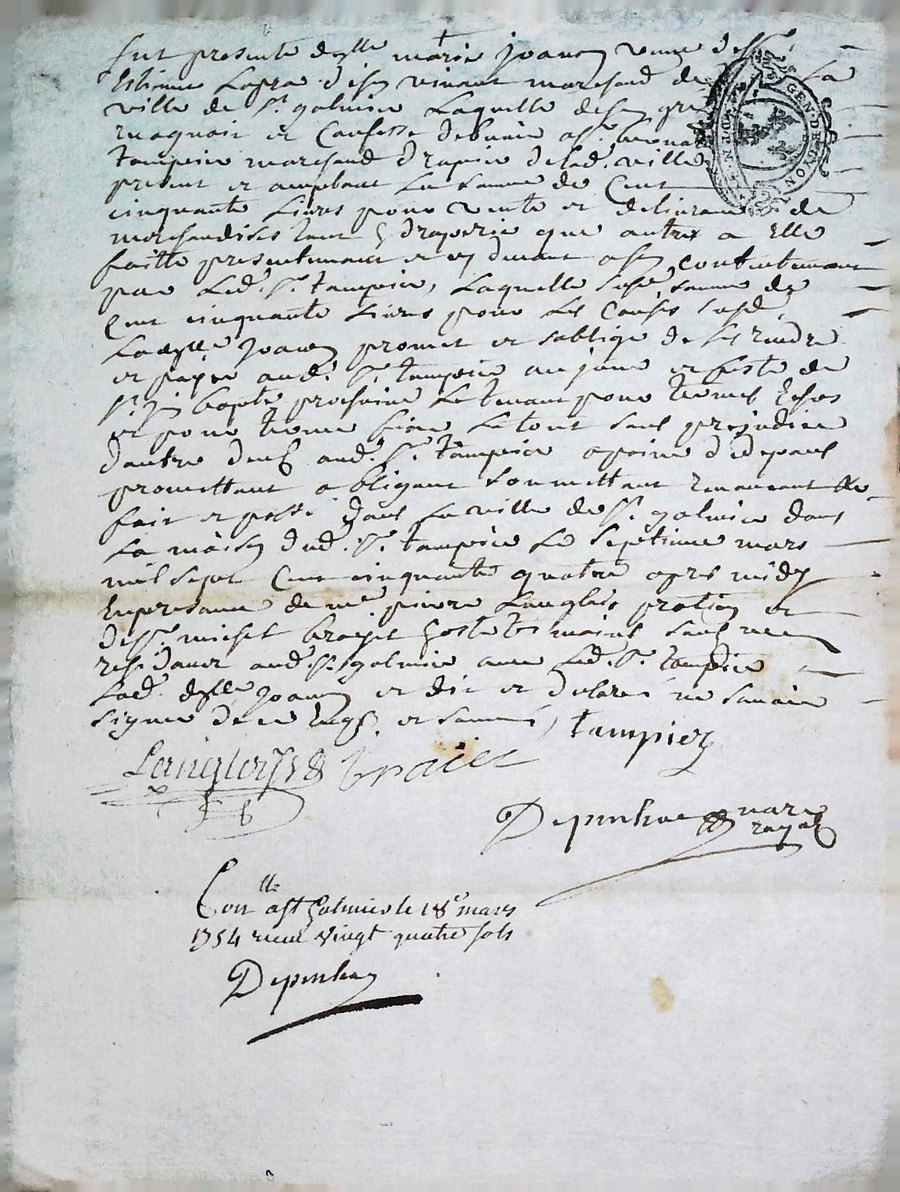 fut presente delle marie joanon veuve de Sr
Estienne Lapra disy vivant marchand de La
ville de St galmier Laquelle de son gre
recognoit et Confesse debvoir a Sr
tampier marchand drapier de lad. ville
present et acceptant La somme de Cent
cinquante Livres pour vente et delivrance de
marchandises tant draperie que autres a Elle
faitte presentement et cy devant a son contentement
par Led. Sr. tampier, Laquelle susd. somme de
Cent cinquante Livres pour Les Causes susd.
Ladelle Joanon promet et soblige de Les rendre
et payer aud. Sr. tampier au jour et feste de
St. baptte prochaine Le tenant pour termes Echos
et pour terme Le tout sans prejudice
dautre deub aud. Sr. tampier a peine de depans
promettant obligeant soumettant renonceant &c
fait et passé dans La ville de St. galmier dans
La maison dud. Sr. tampier Le septieme mars
mil sept Cent cinquante quatre apres midy
En presance de me pierre Langlois praticien et
de Sr. braiet
aud. St. galmier avec Led. Sr. tampier
Lad. delle Joanon et dit et declaré ne savoir
signer de ce Enqs. et sommé, tampier
Langloys braiet
Depinhac nore royal
GENER DE LYON
Conlle a St Galmier le 18e mars
1754 receu vingt quatre sols
Depinhac